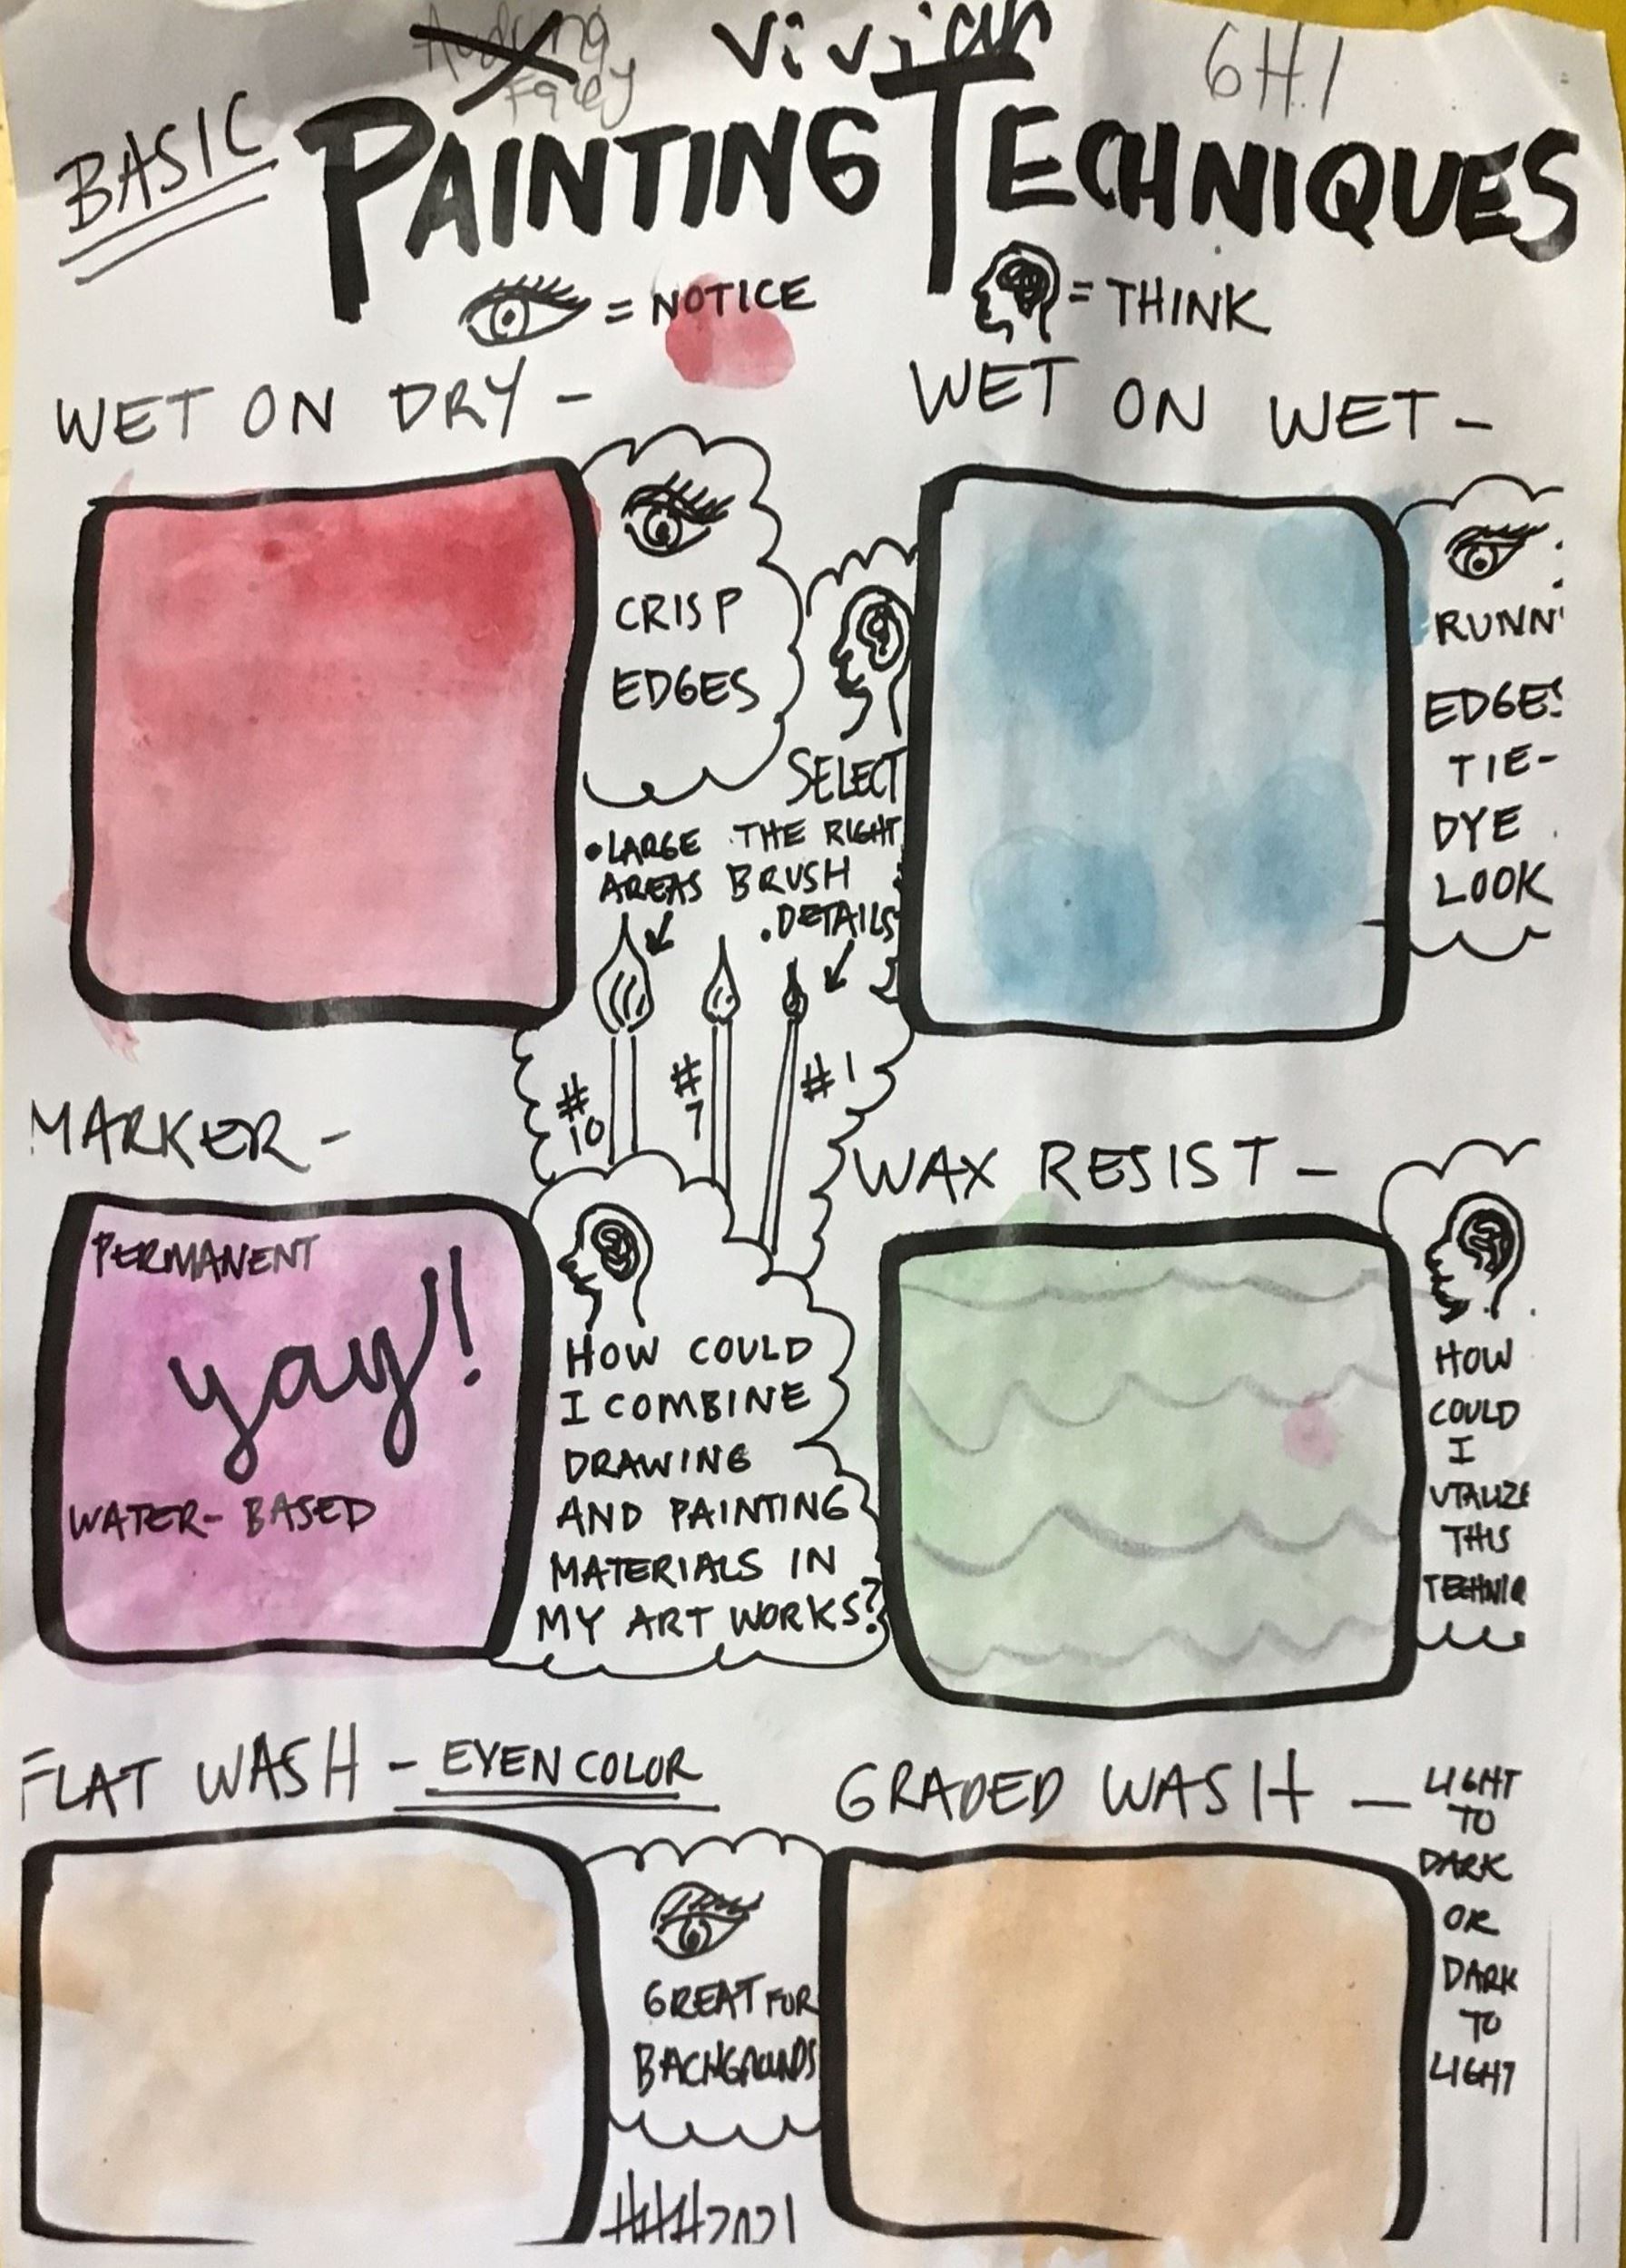 Vivian 6H1
BASIC PAINTING TECHNIQUES
= NOTICE
= THINK
WET ON DRY -
CRISP
EDGES
WET ON WET -
RUNN
EDGES
TIE-
DYE
LOOK
SELECT
THE RIGHT
BRUSH
• LARGE
AREAS
. DETAILS
#10
#7
#1
MARKER -
PERMANENT
yay!
WATER-BASED
HOW COULD
I COMBINE
DRAWING
AND PAINTING
MATERIALS IN
MY ART WORKS?
WAX RESIST -
HOW
COULD
I
UTALIZE
THIS
TECHNIQ
FLAT WASH - EVEN COLOR
GREAT FOR
BACKGROUNDS
GRADED WASH -
LIGHT
TO
DARK
OR
DARK
TO
LIGHT